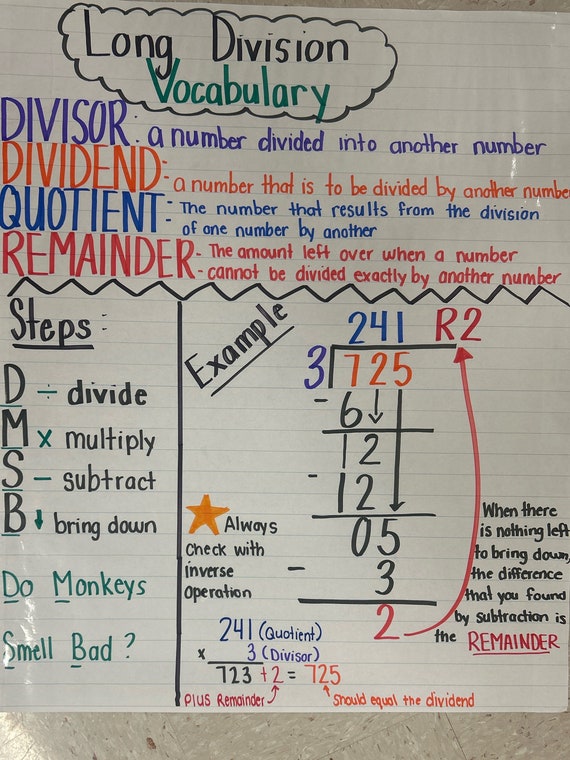 Long Division
Vocabulary
DIVISOR: a number divided into another number
DIVIDEND- a number that is to be divided by another number
QUOTIENT- The number that results from the division
of one number by another
REMAINDER- The amount left over when a number
- cannot be divided exactly by another number
Steps:
D ÷ divide
M x multiply
S - subtract
B ↓ bring down
Do Monkeys
Smell Bad?
Example
241 R2
3 725
- 6 ↓
12
- 12
05
- 3
2
Always
check with
inverse
operation
241 (Quotient)
x 3 (Divisor)
723 + 2 = 725
Plus Remainder
Should equal the dividend
When there
is nothing left
to bring down,
the difference
that you found
by subtraction is
the REMAINDER